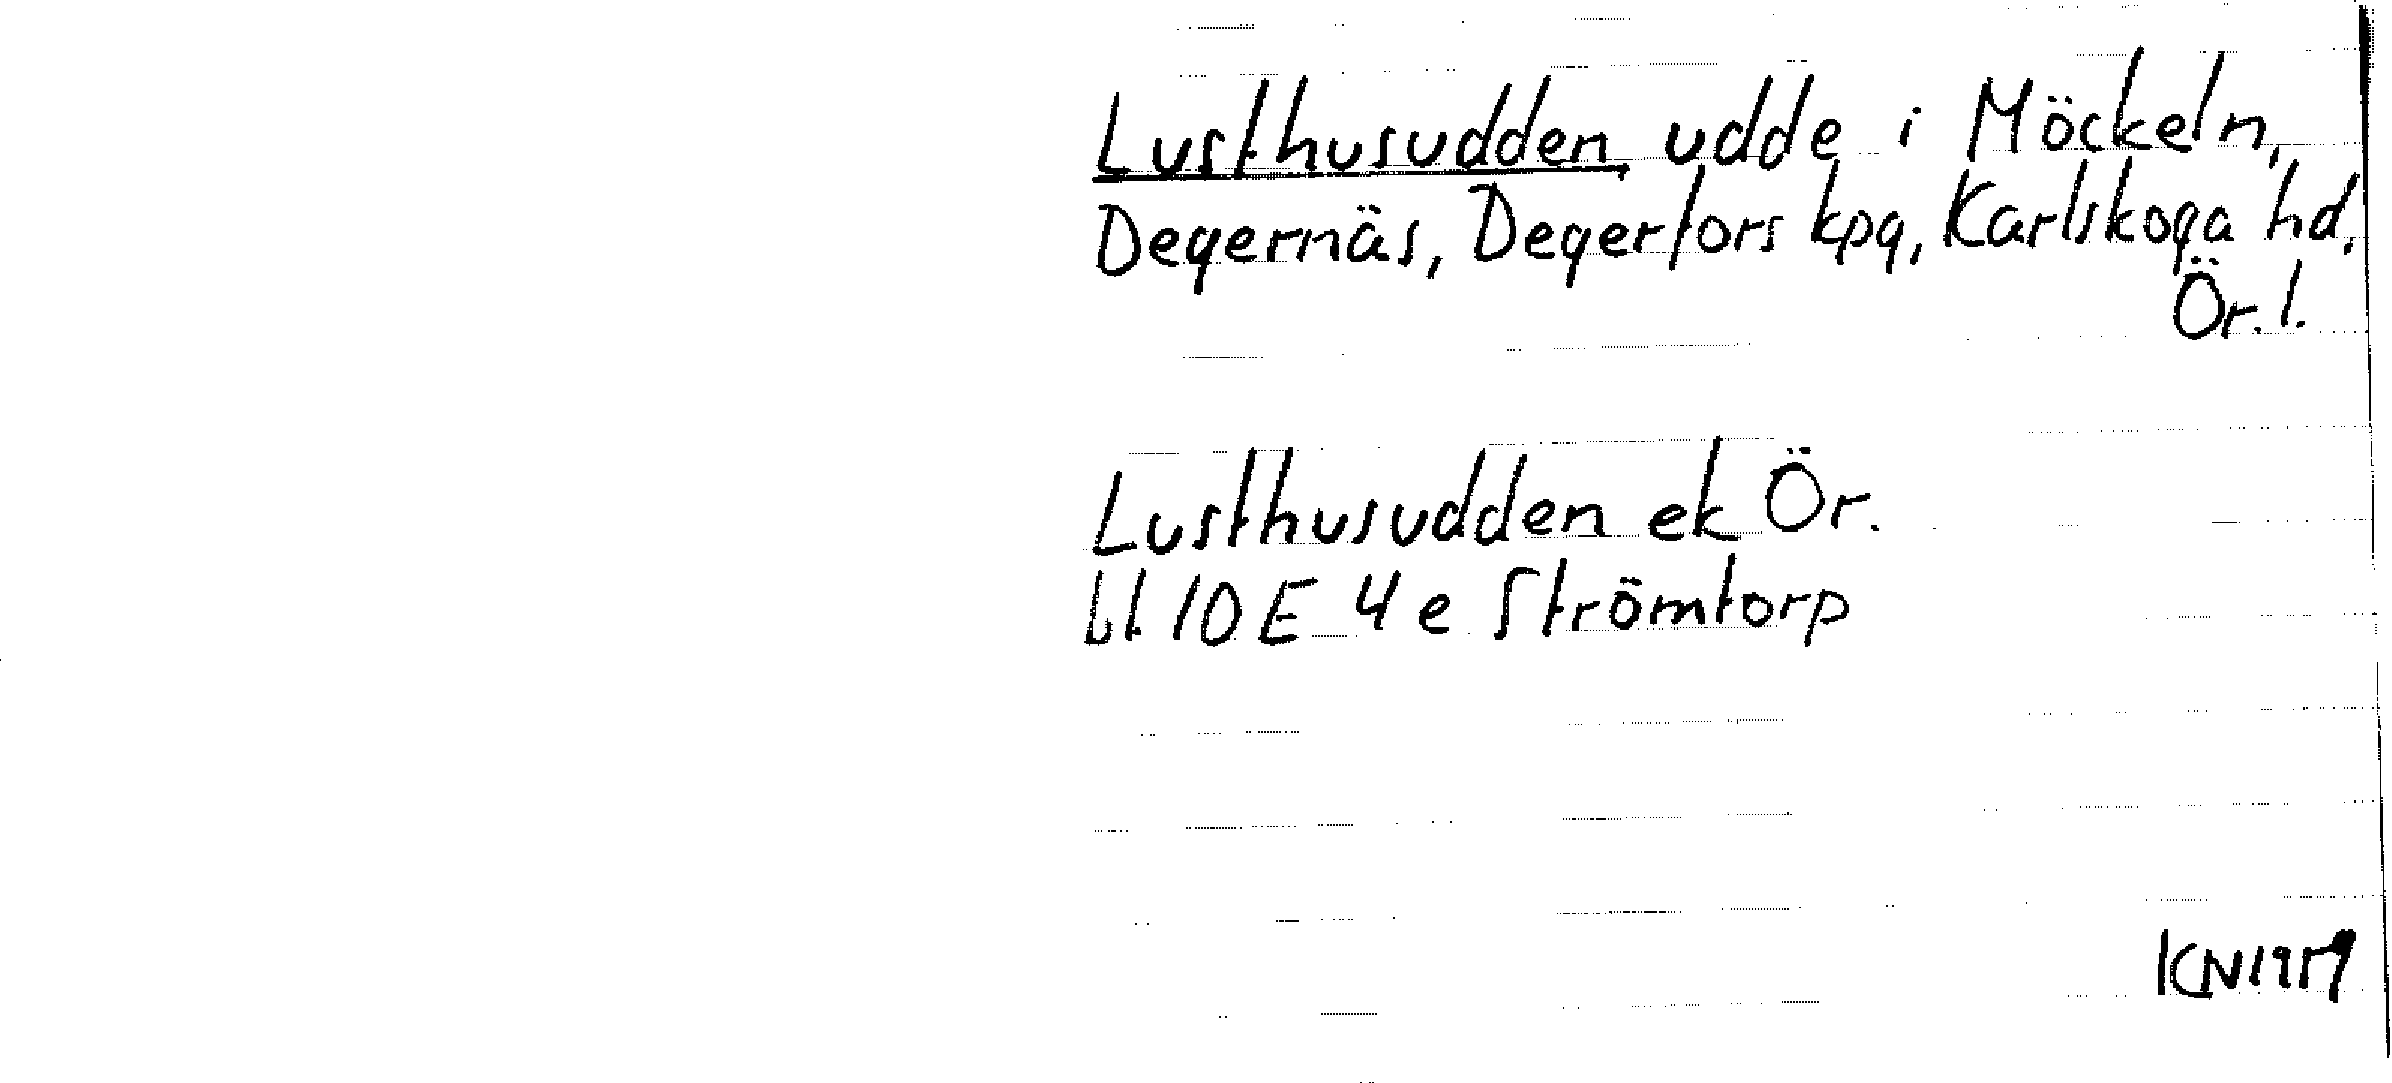 Lusthusudden, udde i Möckeln,
Degernäs, Degerfors kpg, Karlskoga hd,
Ör. l.
Lusthusudden ek Ör.
bl 10 E 4 e Strömtorp